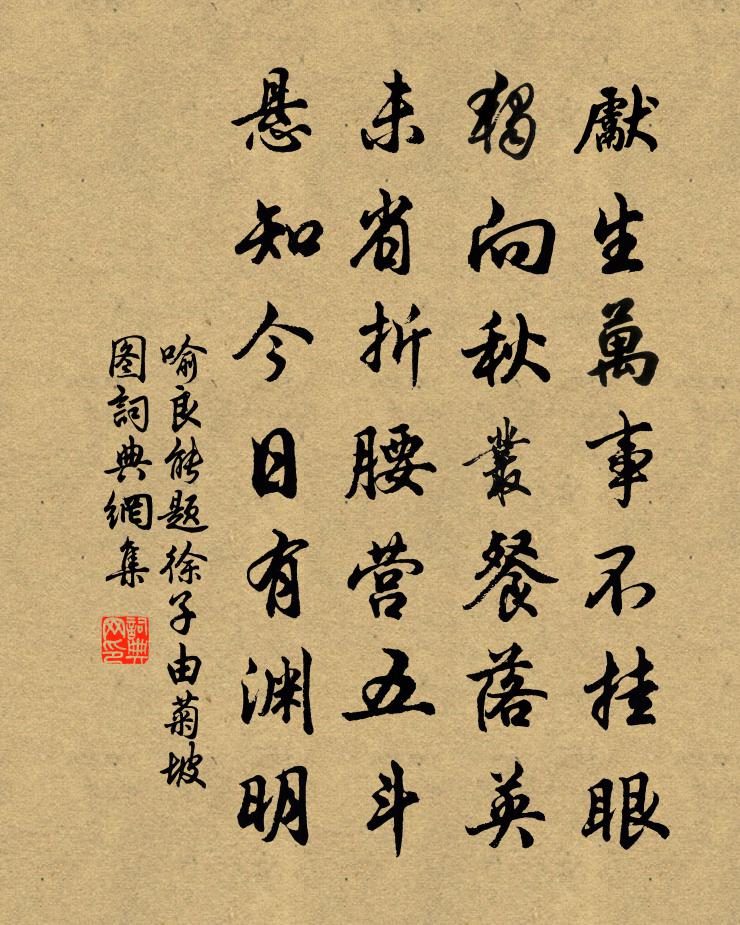 獻生萬事不挂眼
獨向秋叢餐落英
未省折腰营五斗
悬知今日有渊明
喻良能题徐子由菊坡
图詞典網集
詞典
网印